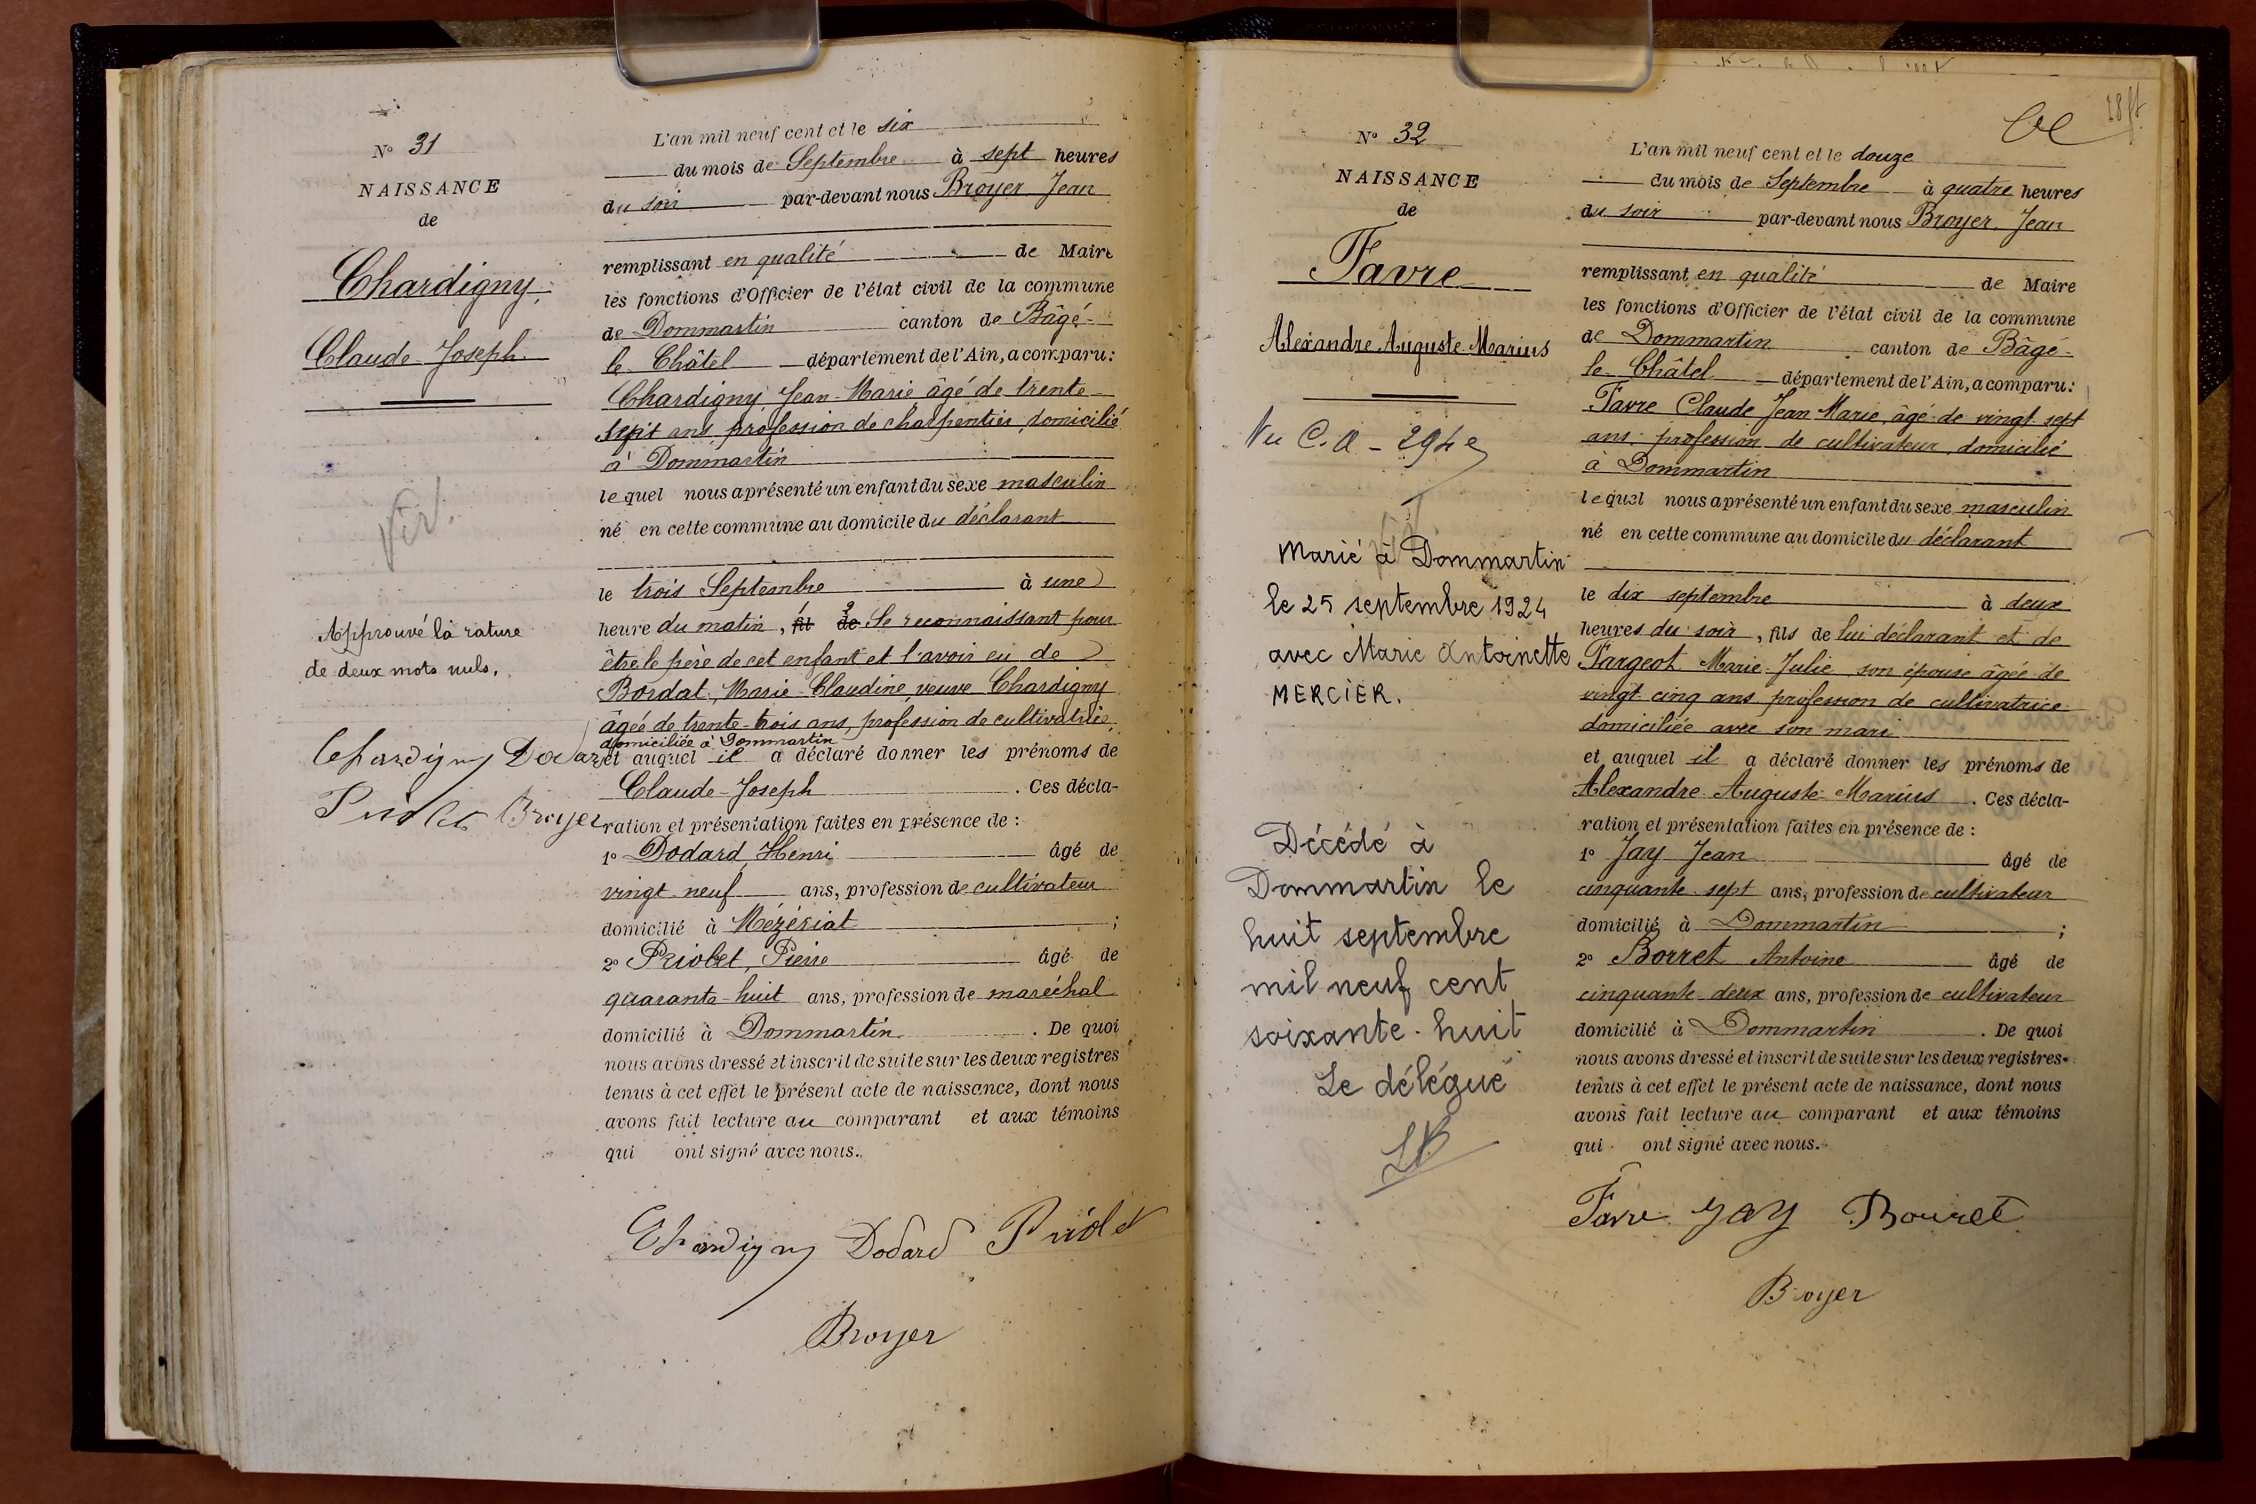 N° 31
NAISSANCE
de
Chardigny
Claude Joseph
Approuvé la rature
de deux mots nuls.
Chardigny Dodard
Priolet Broyer
L'an mil neuf cent et le six
du mois de Septembre à sept heures
du soir par-devant nous Broyer Jean
remplissant en qualité de Maire
les fonctions d'Officier de l'état civil de la commune
de Dommartin canton de Bâgé-
le Châtel département de l'Ain, a comparu:
Chardigny Jean-Marie âgé de trente-
sept ans, profession de charpentier, domicilié
à Dommartin
lequel nous a présenté un enfant du sexe masculin
né en cette commune au domicile du déclarant
le trois Septembre à une
heure du matin, fil de Se reconnaissant pour
être le père de cet enfant et l'avoir eu de
Bordat, Marie-Claudine, veuve Chardigny
âgée de trente-trois ans, profession de cultivatrice,
domiciliée à Dommartin
et auquel il a déclaré donner les prénoms de
Claude-Joseph. Ces décla-
ration et présentation faites en présence de :
1° Dodard, Henri âgé de
vingt neuf ans, profession de cultivateur
domicilié à Mézériat ;
2° Priolet, Pierre âgé de
quarante-huit ans, profession de maréchal
domicilié à Dommartin. De quoi
nous avons dressé et inscrit de suite sur les deux registres
tenus à cet effet le présent acte de naissance, dont nous
avons fait lecture au comparant et aux témoins
qui ont signé avec nous.
Chardigny Dodard Priolet
Broyer
N° 32
NAISSANCE
de
Favre
Alexandre Auguste Marius
Vu C.A - 294
Marié à Dommartin
le 25 septembre 1924
avec Marie Antoinette
MERCIER.
Décédé à
Dommartin le
huit septembre
mil neuf cent
soixante-huit
Le délégué
L'an mil neuf cent et le douze
du mois de Septembre à quatre heures
du soir par-devant nous Broyer Jean
remplissant en qualité de Maire
les fonctions d'Officier de l'état civil de la commune
de Dommartin canton de Bâgé-
le Châtel département de l'Ain, a comparu:
Favre Claude Jean Marie, âgé de vingt sept
ans, profession de cultivateur, domicilié
à Dommartin
lequel nous a présenté un enfant du sexe masculin
né en cette commune au domicile du déclarant
le dix septembre à deux
heures du soir, fils de lui déclarant et de
Fargeot Marie Julie son épouse âgée de
vingt cinq ans profession de cultivatrice
domiciliée avec son mari
et auquel il a déclaré donner les prénoms de
Alexandre Auguste Marius. Ces décla-
ration et présentation faites en présence de :
1° Jay Jean âgé de
cinquante sept ans, profession de cultivateur
domicilié à Dommartin ;
2° Borret Antoine âgé de
cinquante deux ans, profession de cultivateur
domicilié à Dommartin. De quoi
nous avons dressé et inscrit de suite sur les deux registres
tenus à cet effet le présent acte de naissance, dont nous
avons fait lecture au comparant et aux témoins
qui ont signé avec nous.
Favre Jay Bourret
Broyer